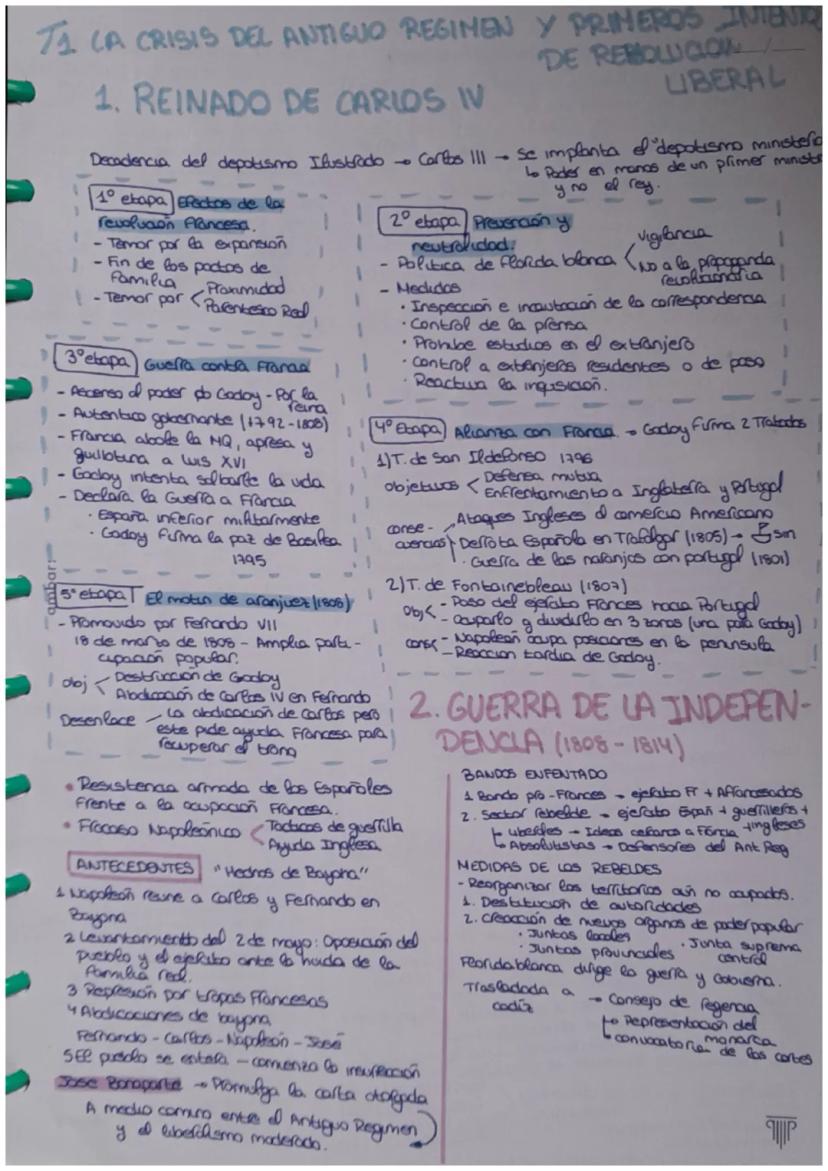 T1 LA CRISIS DEL ANTIGUO REGIMEN Y PRIMEROS INTENTO
DE REVOLUCION
LIBERAL
1. REINADO DE CARLOS IV
Decadencia del depotismo Ilustrado → Carlos III → se implanta el "depotismo ministeria
↳ Poder en manos de un primer ministr
y no el rey.
1º etapa Efectos de la
revolución francesa.
- Temor por la expansión
- Fin de los pactos de
familia
- Temor por < Proximidad
Parentesco Real
2º etapa Prevención y
neutralidad:
- Política de florida blanca < Vigilancia
No a la propaganda
revolucionaria
- Medidas
· Inspección e incautación de la correspondencia
· Control de la prensa
· Prohibe estudios en el extranjero
· Control a extenjeros residentes o de paso
· Reactiva la inquisición.
3º etapa Guerra contra Francia
- Ascenso al poder do Godoy - Por la
reina
- Autentico gobernante (1792-1808)
- Francia abole la MQ, apresa y
guillotina a Luis XVI
- Godoy intenta salbarle la vida
- Declara la Guerra a Francia
· España inferior militarmente
· Godoy firma la paz de Basilea
1795
4º Etapa Alianza con Francia → Godoy firma 2 Tratados
1) T. de San Ildefonso 1796
objetivos < Defensa mutua
Enfrentamiento a Inglaterra y Portugal
conse-
cuencias
Ataques Ingleses al comercio Americano
Derrota Española en Trafalgar (1805) → sin
· Guerra de las naranjas con portugal (1801)
2) T. de Fontainebleau (1807)
obj < - Paso del ejercito Frances hacia Portugal
- ocuparlo y dividirlo en 3 zonas (una para Godoy)
cons < - Napoleón ocupa posiciones en la peninsula
- Reaccion tardia de Godoy.
5º etapa El motin de aranjuez (1808)
- Promovido por Fernando VII
18 de marzo de 1808 - Amplia parti-
cipación popular.
obj < Destrucción de Godoy
Abdicación de Carlos IV en Fernando
Desenlace
La abdicación de Carlos pero
este pide ayuda Francesa para
recuperar el trono
2. GUERRA DE LA INDEPEN-
DENCIA (1808-1814)
• Resistencia armada de los Españoles
frente a la ocupación Francesa.
• Fracaso Napoleónico < Tacticas de guerrilla
Ayuda Inglesa
ANTECEDENTES "Hechos de Bayona"
1 Napoleón reune a Carlos y Fernando en
Bayona
2 Levantamiento del 2 de mayo: Oposición del
pueblo y el ejercito ante la huida de la
familia real.
3 Represión por tropas Francesas
4 Abdicaciones de bayona
Fernando - Carlos - Napoleón - José
5 El pueblo se entera - comienza la insurrección
Jose Bonaparte → Promulga la carta otorgada
A medio camino entre el Antiguo Regimen
y el liberalismo moderado.
BANDOS ENFENTADO
1 Bando pro-Frances → ejercito Fr + Affrancesados
2. Sector rebelde → ejercito Españ + guerrilleros +
+ingleses
liberales → Ideas cercanas a Francia
Absolutistas → Defensores del Ant Reg
MEDIDAS DE LOS REBELDES
- Reorganizar los territorios aún no ocupados.
1. Destitución de autoridades
2. Creacción de nuevos organos de poder popular
· Juntas locales
· Juntas provinciales · Junta suprema
central
Floridablanca dirige la guerra y Gobierna.
Trasladada a
cadiz
→ Consejo de Regencia
↳ Representación del
monarca
↳ convocatoria de las cortes